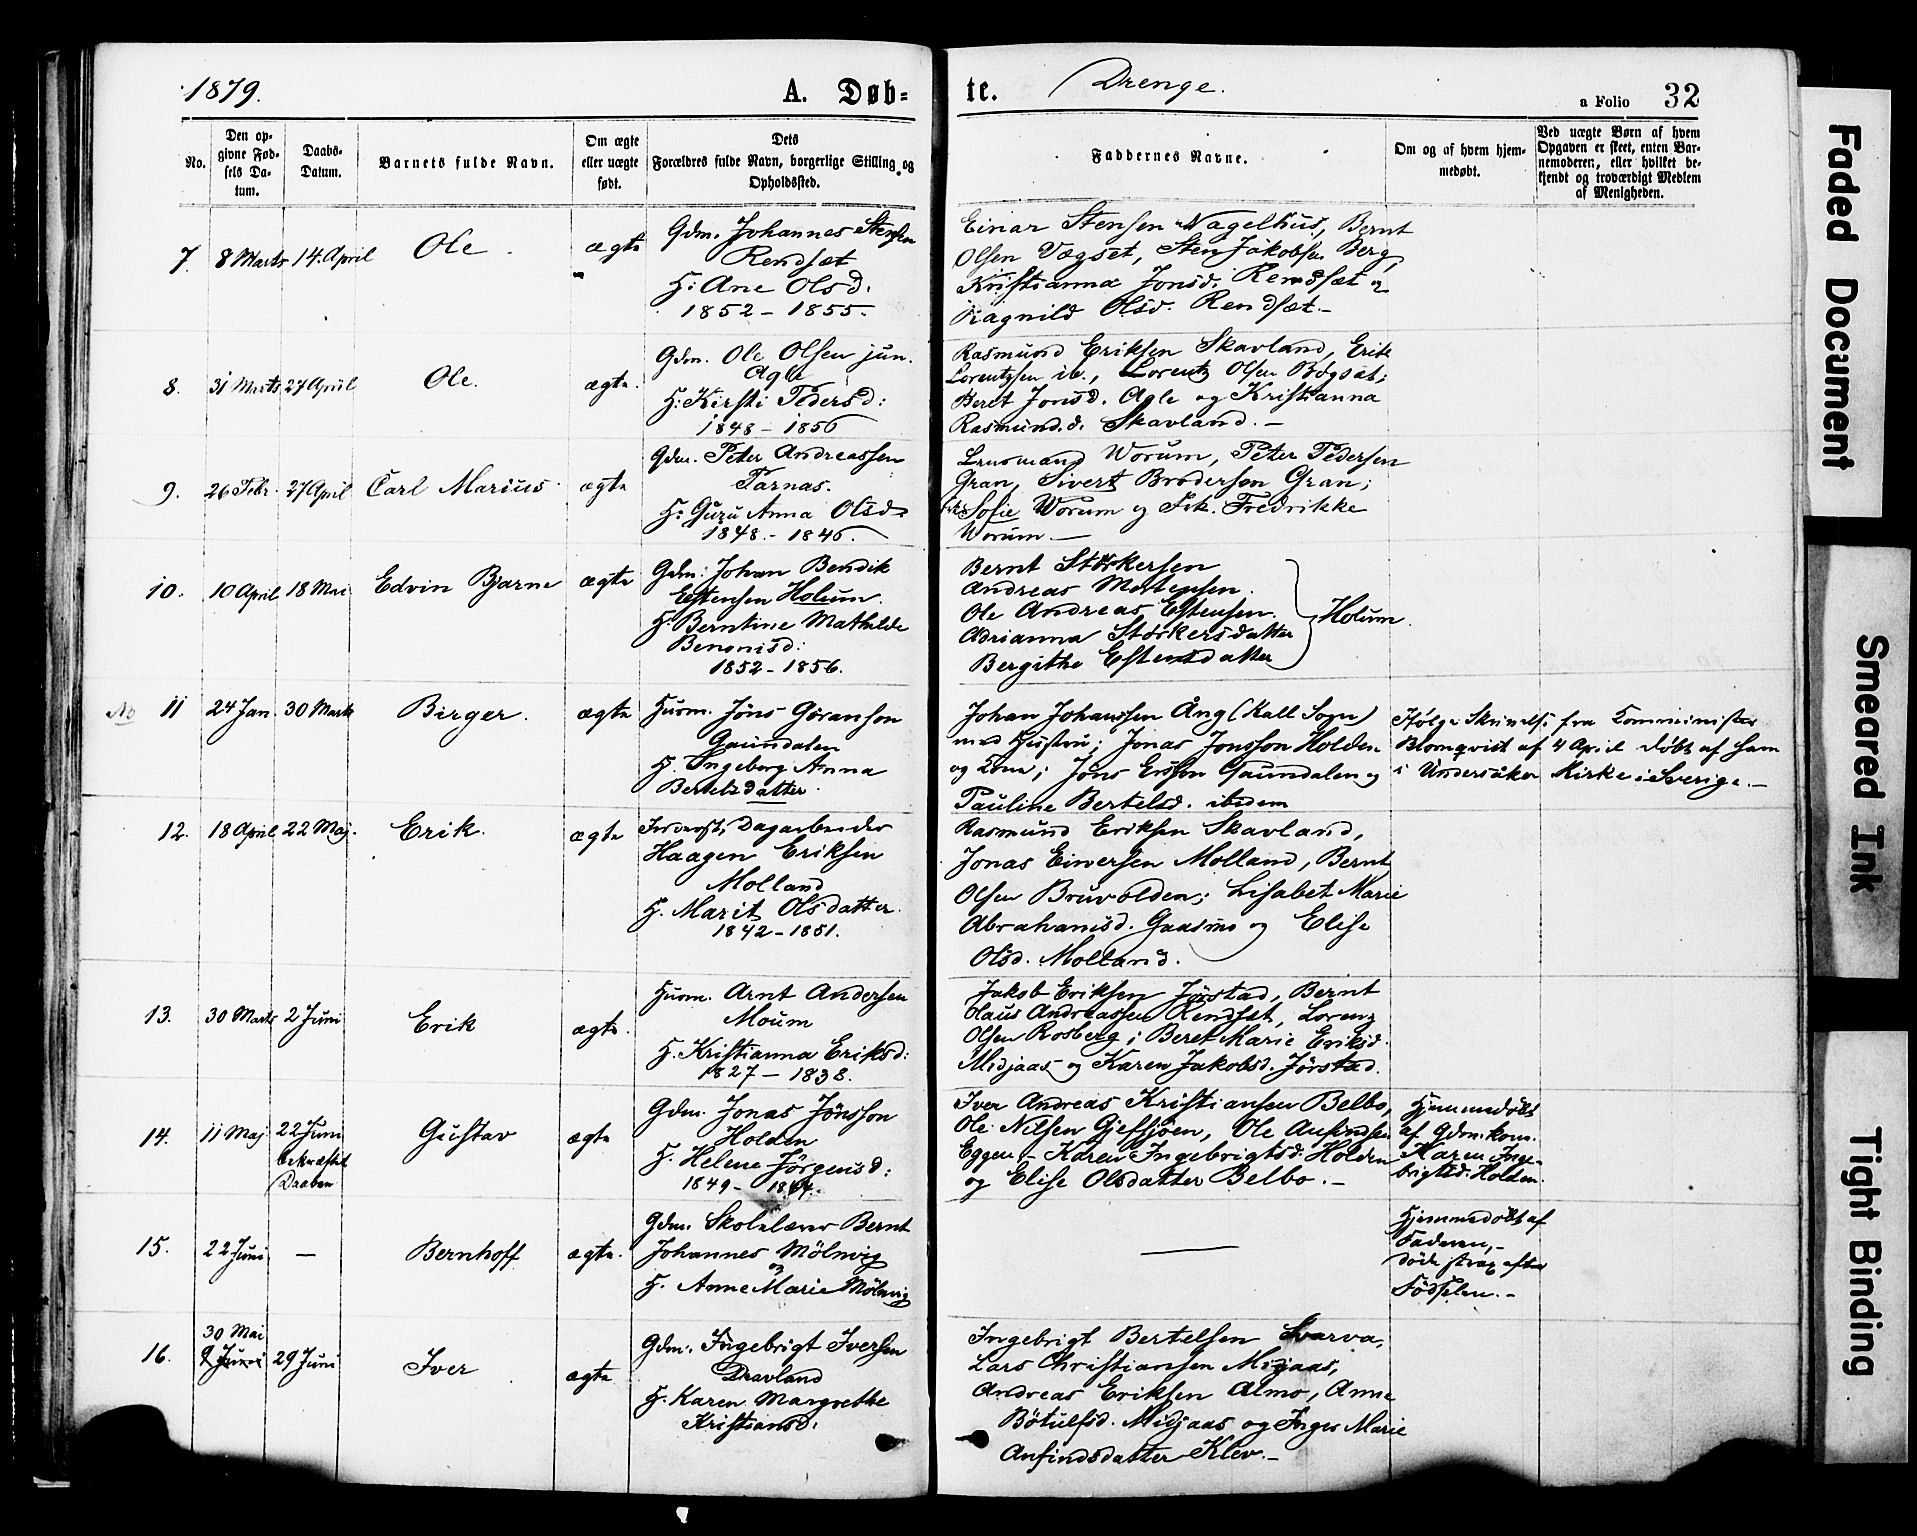 1879.
A. Døb=
te.
Drenge.
a Folio 32
No.
Den op-
givne Fød-
sels Da-
tum.
Daabs-
Datum.
Barnets fulde Navn.
Om ægte
eller uægte
født.
Dets
Forældres fulde Navn, borgerlige Stilling og
Opholdssted.
Faddernes Navne.
Om og af hvem hjem-
medøbt.
Ved uægte Børn af hvem
Opgaven er skeet, enten Bar-
nemoderen, eller hvilket be-
kjendt og troværdigt Medlem
af Menigheden.
7. 8 Marts 14. April Ole ægte
Gdm. Johannes Stensen
Rendsæt
H: Ane Olsd:
1852 - 1855.
Einar Stensen Nagelhus, Bernt
Olsen Vægset, Sten Jakobsen Berg,
Kristianna Jonsd. Rendsæt og
Ragnild Olsd. Rendsæt.-
8. 31 Marts 27 April Ole. ægte.
Gdm. Ole Olsen jun.
Agle
H: Kirsti Pedersd:
1848 - 1856
Rasmund Eriksen Skavland, Erik
Lorentzsen ib., Lorentz Olsen Bøgsæt;
Beret Jonsd. Agle og Kristianna
Rasmund.d. Skavland. -
9. 26 Febr. 27 April Carl Marius ægte
Gdm. Peter Andreassen
Parnas.
H: Guru Anna Olsd:
1848. - 1846.
Lensmand Worum, Peter Pedersen
Gran, Sivert Brodersen Gran;
Sofie Worum og Frk. Fredrikke
Worum. -
10. 10 April 18 Mai Edvin Bjarne ægte
Gdm: Johan Bendik
Estensen Holum.
H. Berntine Mathilde
Benonisd:
1852 - 1856.
Bernt Størkersen
Andreas Mortensen.
Ole Andreas Estensen.
Adrianna Størkersdatter
Bergithe Estensdatter
Holum.
NB 11 24 Jan. 30 Marts Birger. ægte
Huusm. Jöns Göranson
Gaundalen
H. Ingeborg Anna
Bertelsdatter.
Johan Johanssen Äng (Kall Sogn)
med Hustru; Jonas Jonsson Holden
og Kone; Jöns Ersson Gaundalen og
Pauline Bertelsd. ibidem
Ifølge Skrivelse fra Komminister
Blomqvist af 4 April døbt af ham
i Undersåker Kirke i Sverige. -
12. 18 April 22 Maj. Erik. ægte
Inderst, Dagarbeider
Haagen Eriksen
Molland
H. Marit Olsdatter.
1842 - 1851.
Rasmund Eriksen Skavland,
Jonas Einersen Molland, Bernt
Olsen Bruvolden; Lisabet Marie
Abrahamsd. Gaasmo og Elise
Olsd. Molland.
13. 30 Marts 2 Juni Erik ægte.
Husm. Arnt Andersen
Moum
H. Kristianna Eriksd:
1827 - 1838.
Jakob Eriksen Jørstad, Bernt
Olaus Andreassen Rendsæt, Lorenz
Olsen Rosberg; Beret Marie Eriksd.
Midjaas og Karen Jakobsd. Jørstad.
14. 11 Maj 22 Juni
bekræftet
Daaben
Gustav ægte
Gdm. Jonas Jönsson
Holden
H. Helene Jörgensd:
1849 - 1844.
Iver Andreas Kristiansen Belbo,
Ole Nilsen Gjefsjøen, Ole Anfindsen
Eggen - Karen Ingebrigtsd. Holden
og Elise Olsdatter Belbo. -
Hjemmedøbt
af Gdm.kone.
Karen Inge-
brigtsd. Holden.
15. 22 Juni - Bernhoff ægte.
Gdm. Skolelærer Bernt
Johannes Mölnvig
og
H. Anne Marie Mölnvig
Hjemmedøbt af
Faderen, -
døde strax efter
Fødselen. -
16. 30 Mai
9 Juni
29 Juni Iver ægte
Gdm. Ingebrigt Iversen
Dravland
H. Karen Margrethe
Kristiansd:
Ingebrigt Bertelsen Svarva,
Lars Christiansen Midjaas,
Andreas Eriksen Almo, Anne
Bötulfsd. Midjaas og Inger Marie
Anfindsdatter Klev. -
Faded Document
Smeared Ink
Tight Binding